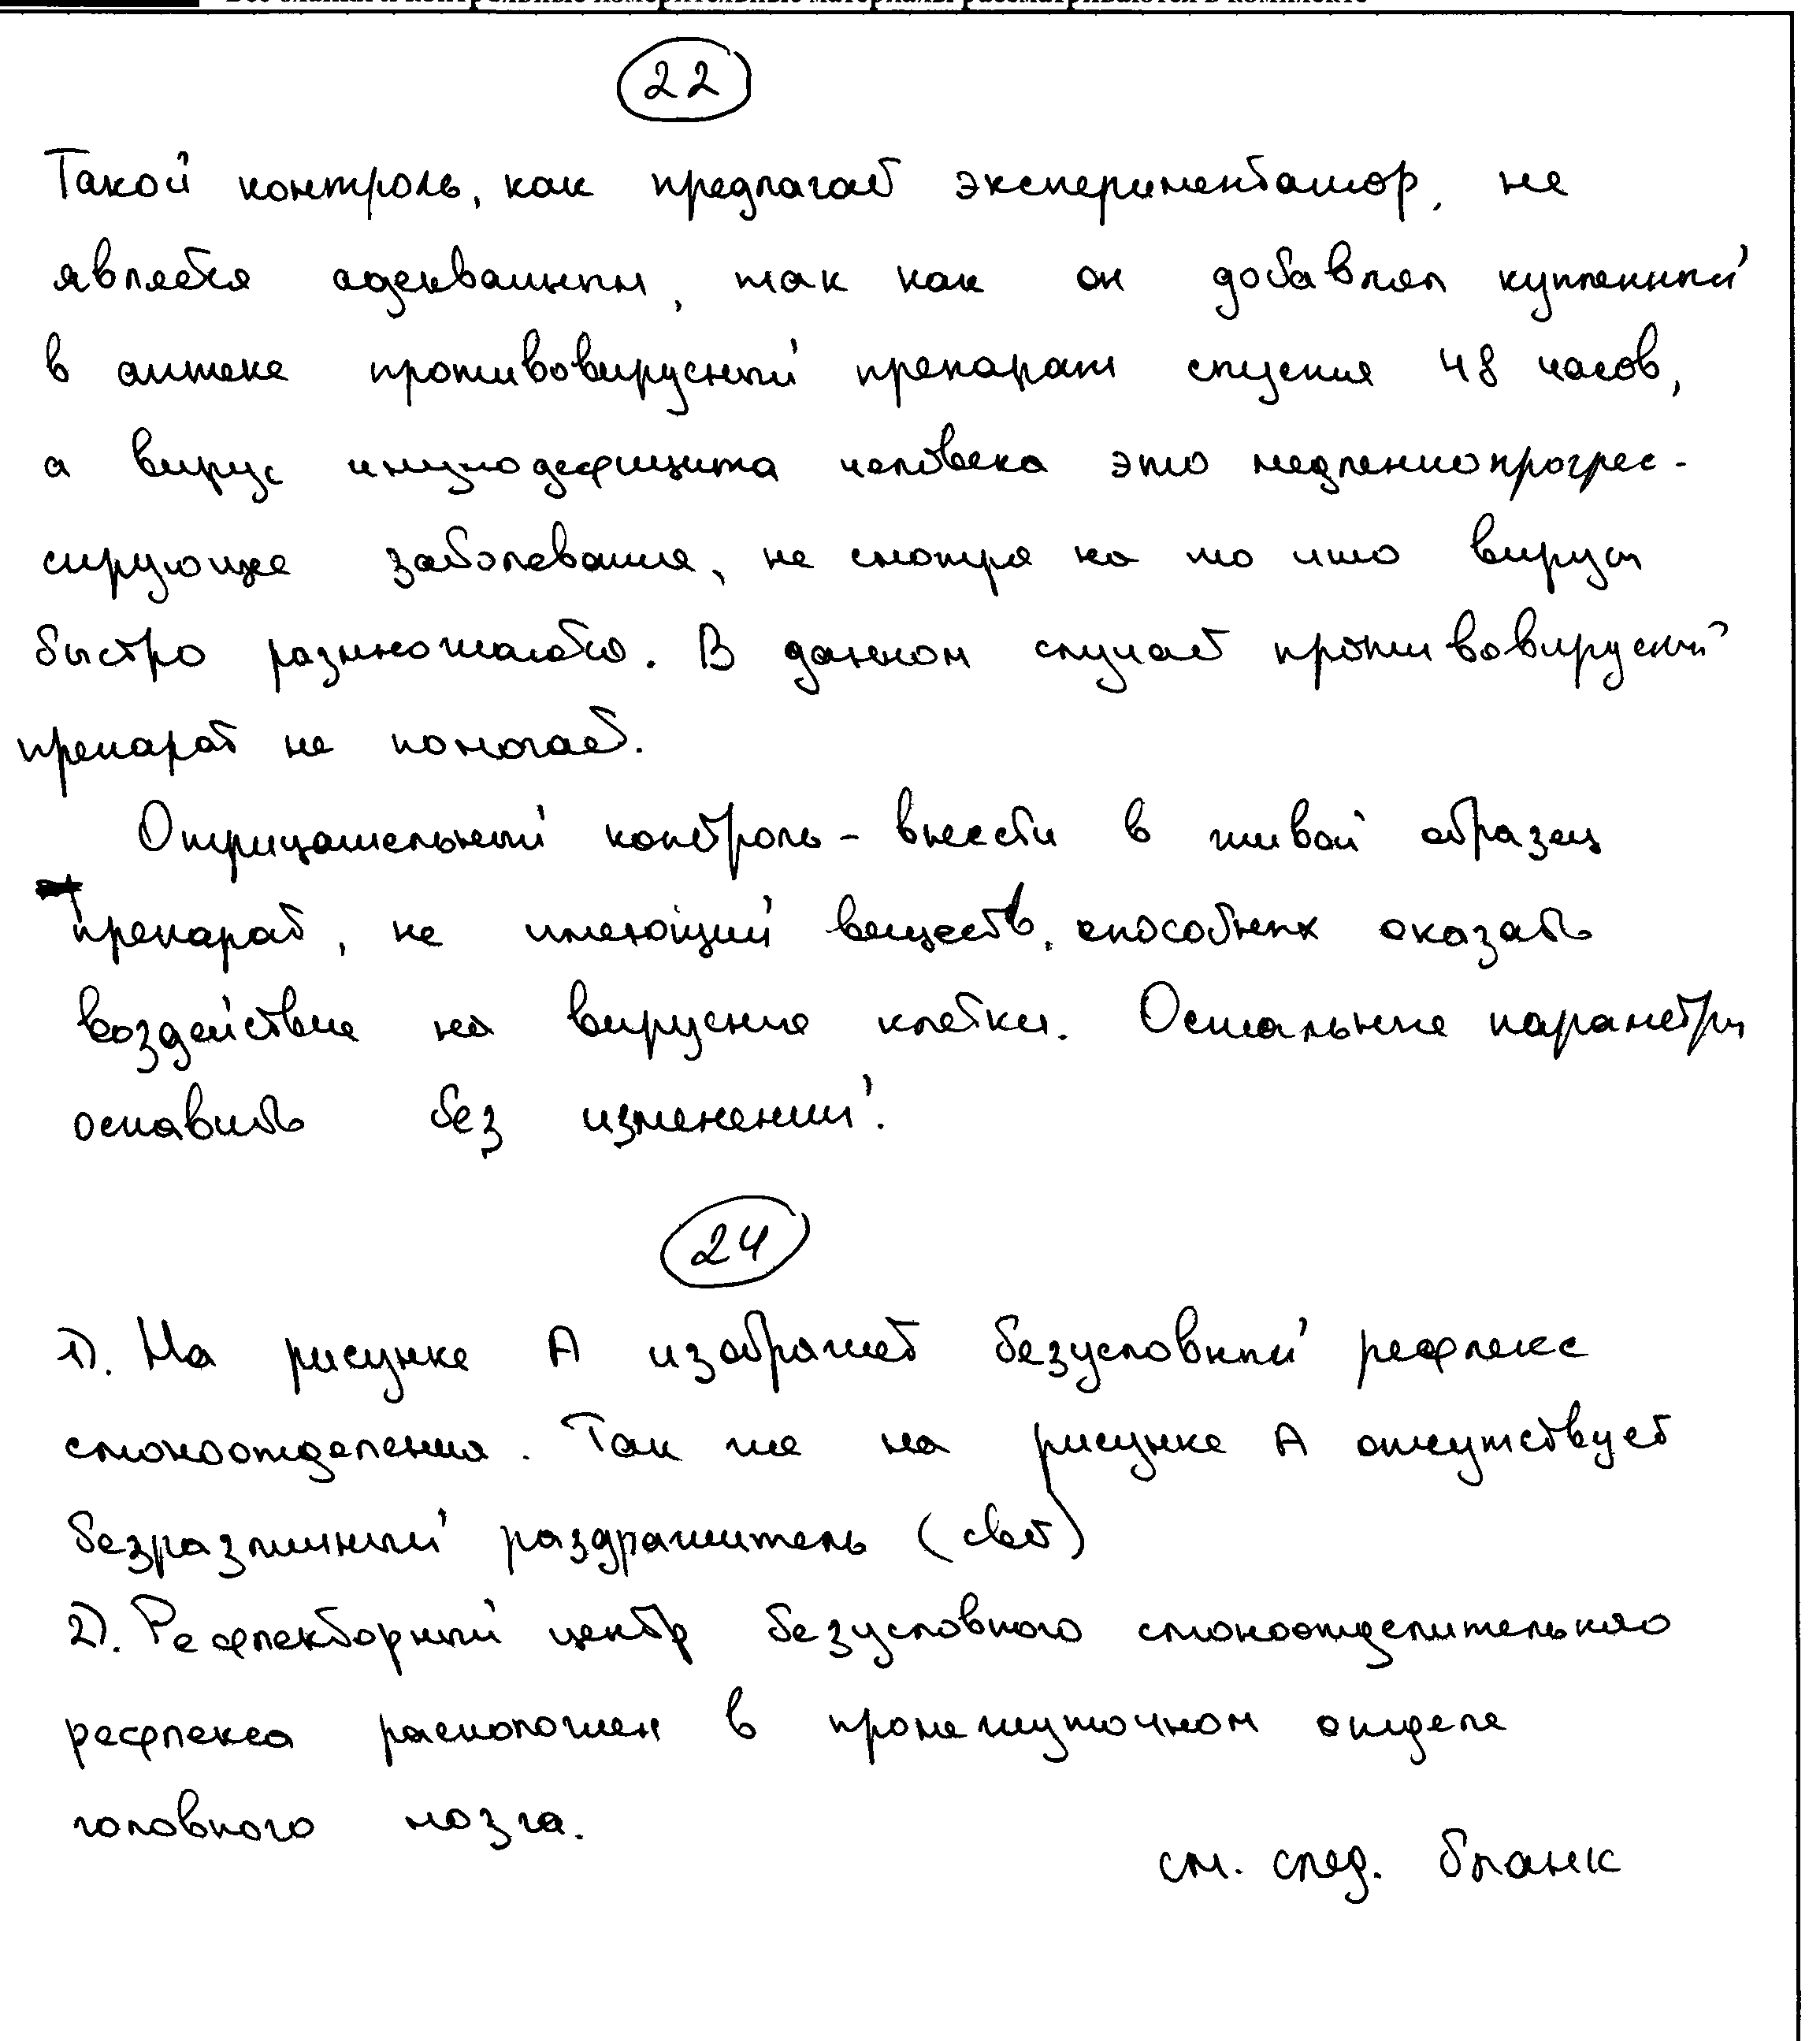 Все бланки и контрольные измерительные материалы рассматриваются в комплекте
22
Такой контроль, как предлагает экспериментатор, не
является адекватным, так как он добавлял купленный
в аптеке противовирусный препарат спустя 48 часов,
а вирус имунодефицита человека это медленнопрогрес-
сирующее заболевания, не смотря на то что вирусы
быстро размножаются. В данном случает противовирусный
препарат не помогает.
Отрицательный контроль - внести в живой образец
препарат, не имеющий веществ, способных оказать
воздействие на вирусные клетки. Остальные параметры
оставить без изменений.
24
1). На рисунке А изображет безусловный рефлекс
слюноотделения. Так же на рисунке А отсутствует
безразличный раздражитель (свет)
2). Рефлекторный центр безусловного слюноотделительного
рефлекса расположен в промежуточном отделе
головного мозга.
см. след. бланк